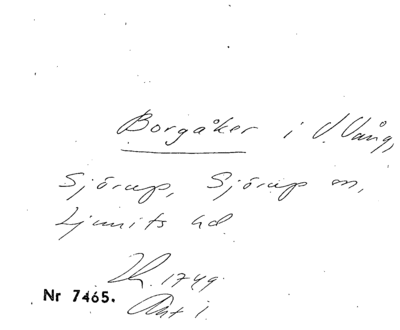 Borgåker i V. Vång,
Sjörup, Sjörup sn,
Ljunits hd
1749
Nr 7465.
Akt 1